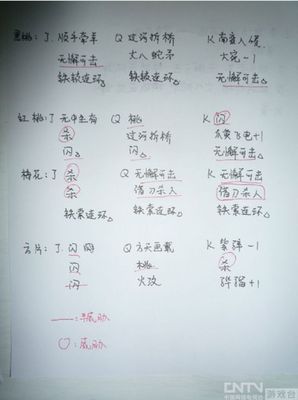 黑桃:J. 顺手牵羊 Q 过河拆桥 K 南蛮入侵
无懈可击 丈八蛇矛 大宛-1
铁索连环 铁索连环 无懈可击
红桃:J 无中生有 Q 桃 K 闪
杀 过河拆桥 爪黄飞电+1
闪 闪 无懈可击
梅花:J 杀 Q 无懈可击 K 无懈可击
杀 借刀杀人 借刀杀人
铁索连环 铁索连环 铁索连环
方片:J. 闪 Q 方天画戟 K 紫骍-1
闪 桃 杀
闪 火攻 骅骝+1
CNTV 游戏台
中国网络电视台